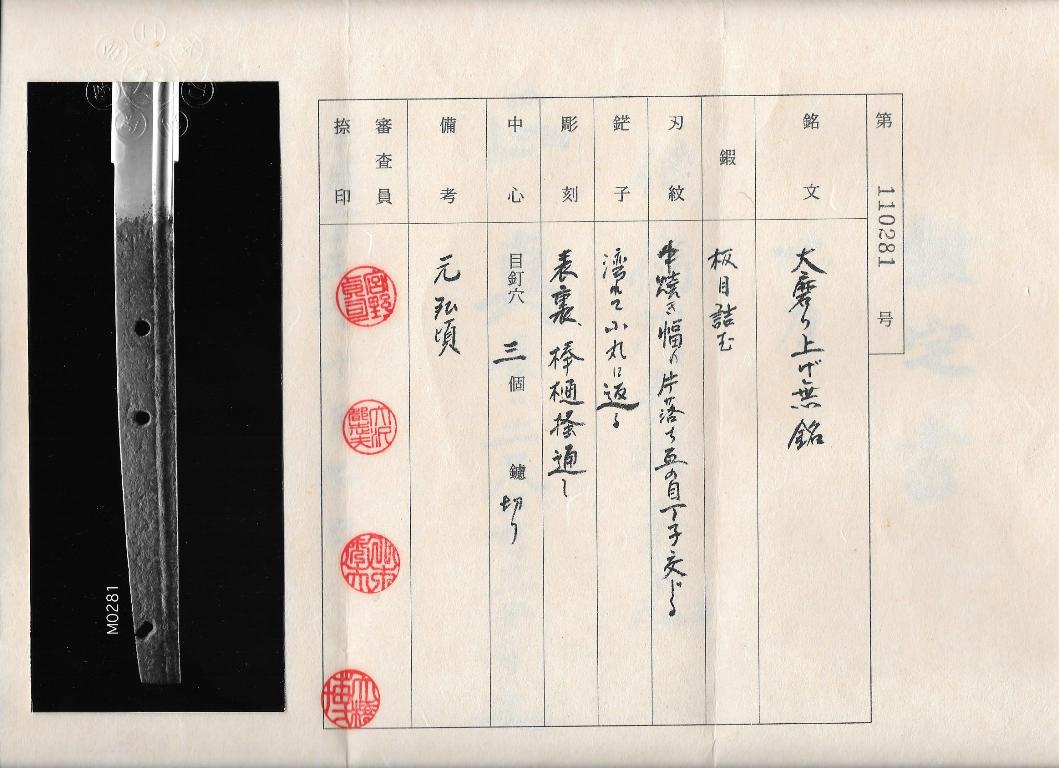 第 110281 号
銘文 大磨り上げ無銘
鍜 板目詰む
刃紋 中焼き幅の片落ち互の目丁子交じる
鋩子 湾れて小丸に返る
彫刻 表裏、棒樋掻通し
中心 目釘穴 三個 鑢 切り
備考 元弘頃
審査員
捺印
M0281